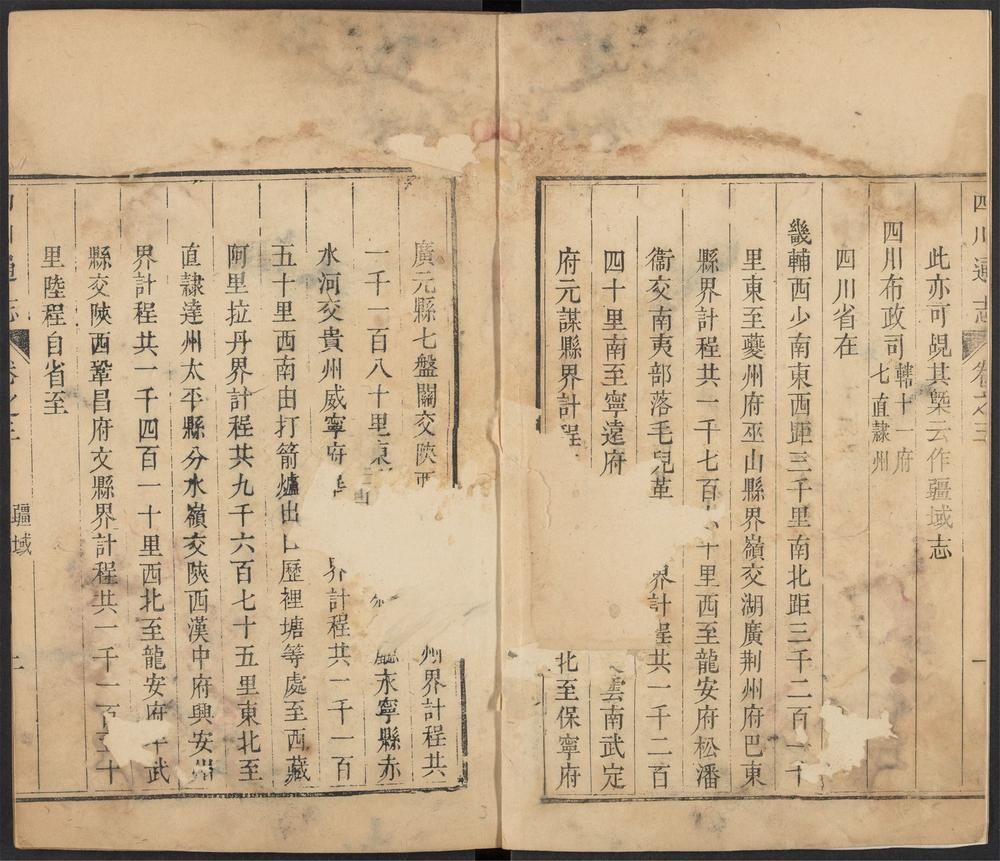 四川通志
卷之三
此亦可覘其槩云作疆域志
四川布政司轄十一府七直隸州
四川省在
畿輔西少南東西距三千里南北距三千二百一十
里東至夔州府巫山縣界嶺交湖廣荆州府巴東
縣界計程共一千七百十里西至龍安府松潘
衞交南夷部落毛兒革界計程共一千二百
四十里南至寧遠府雲南武定
府元謀縣界計程北至保寧府
廣元縣七盤關交陝州界計程共
一千一百八十里東永寧縣赤
水河交貴州威寧府界計程共一千一百
五十里西南由打箭爐出口歷裡塘等處至西藏
阿里拉丹界計程共九千六百七十五里東北至
直隸達州太平縣分水嶺交陝西漢中府興安州
界計程共一千四百一十里西北至龍安府平武
縣交陝西鞏昌府文縣界計程共一千一百三十
里陸程自省至
通志
卷之三
疆域